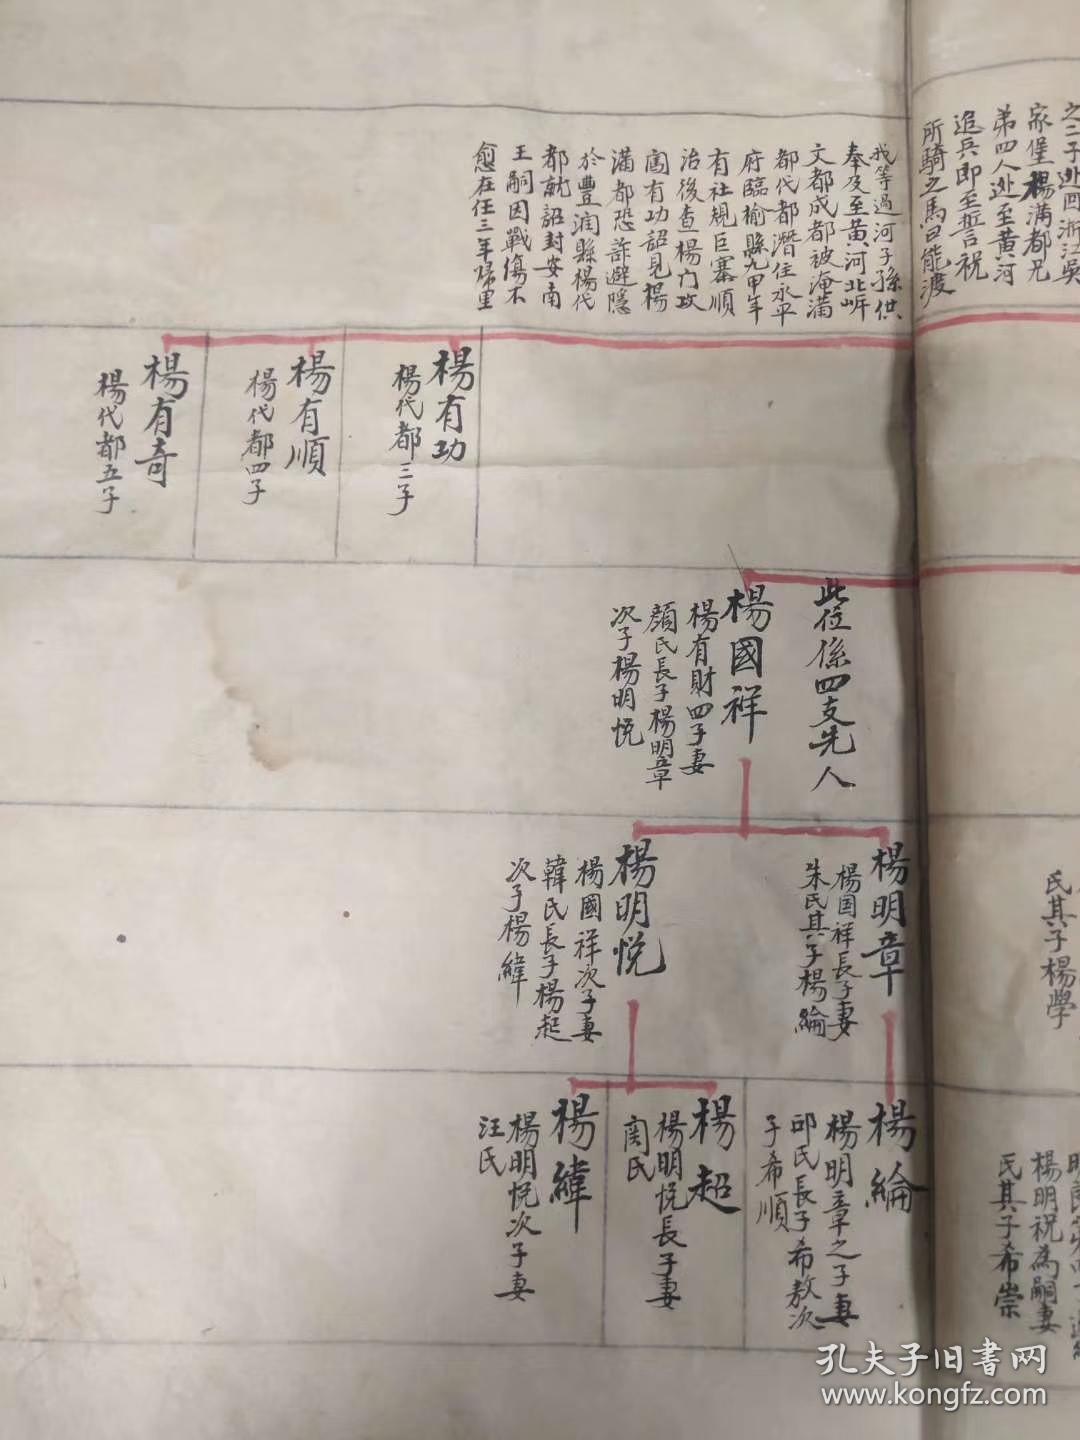 之二子迯回浙江吳
家堡楊滿都兄
弟四人迯至黄河
追兵即至誓言祝
所騎之馬曰能渡
我等過河子孫供
奉及至黄河北岍
文都成都被淹滿
都代都潛住永平
府臨榆縣九甲年
有社規巨寨順
治後查楊門攻
闯有功詔見楊
滿都恐詐避隱
於豐润縣楊代
都就詔封安南
王嗣因戰傷不
愈在任三年歸里
楊有功
楊代都三子
楊有順
楊代都四子
楊有奇
楊代都五子
此位係四支先人
楊國祥
楊有財四子妻
顏氏長子楊明章
次子楊明悅
氏其子楊學
楊明章
楊国祥長子妻
朱氏其子楊綸
楊明悅
楊國祥次子妻
韓氏長子楊起
次子楊緯
楊明祝為嗣妻
氏其子希崇
楊綸
楊明章之子妻
邱氏長子希敖次
子希順
楊超
楊明悅長子妻
閆氏
楊緯
楊明悅次子妻
汪氏
孔夫子旧書网
www.kongfz.com